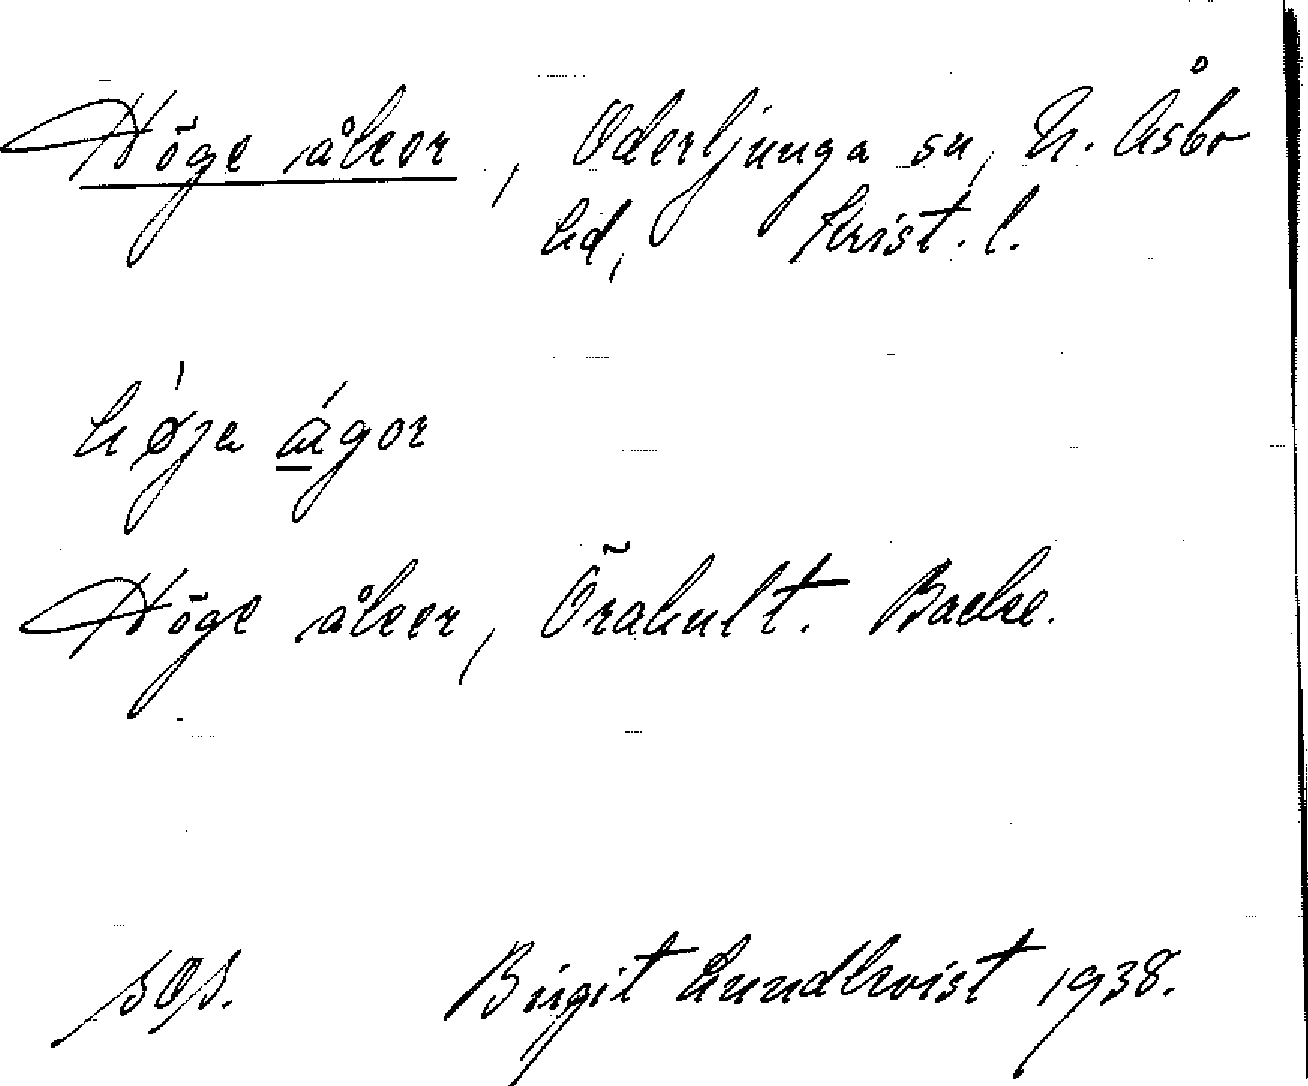 Höge åkor, Oderljunga sn, N. Åsbo
hd, Krist. l.
høja ágor
Höge åker, Örahult. Backe.
SOS. Birgit Lundkvist 1938.